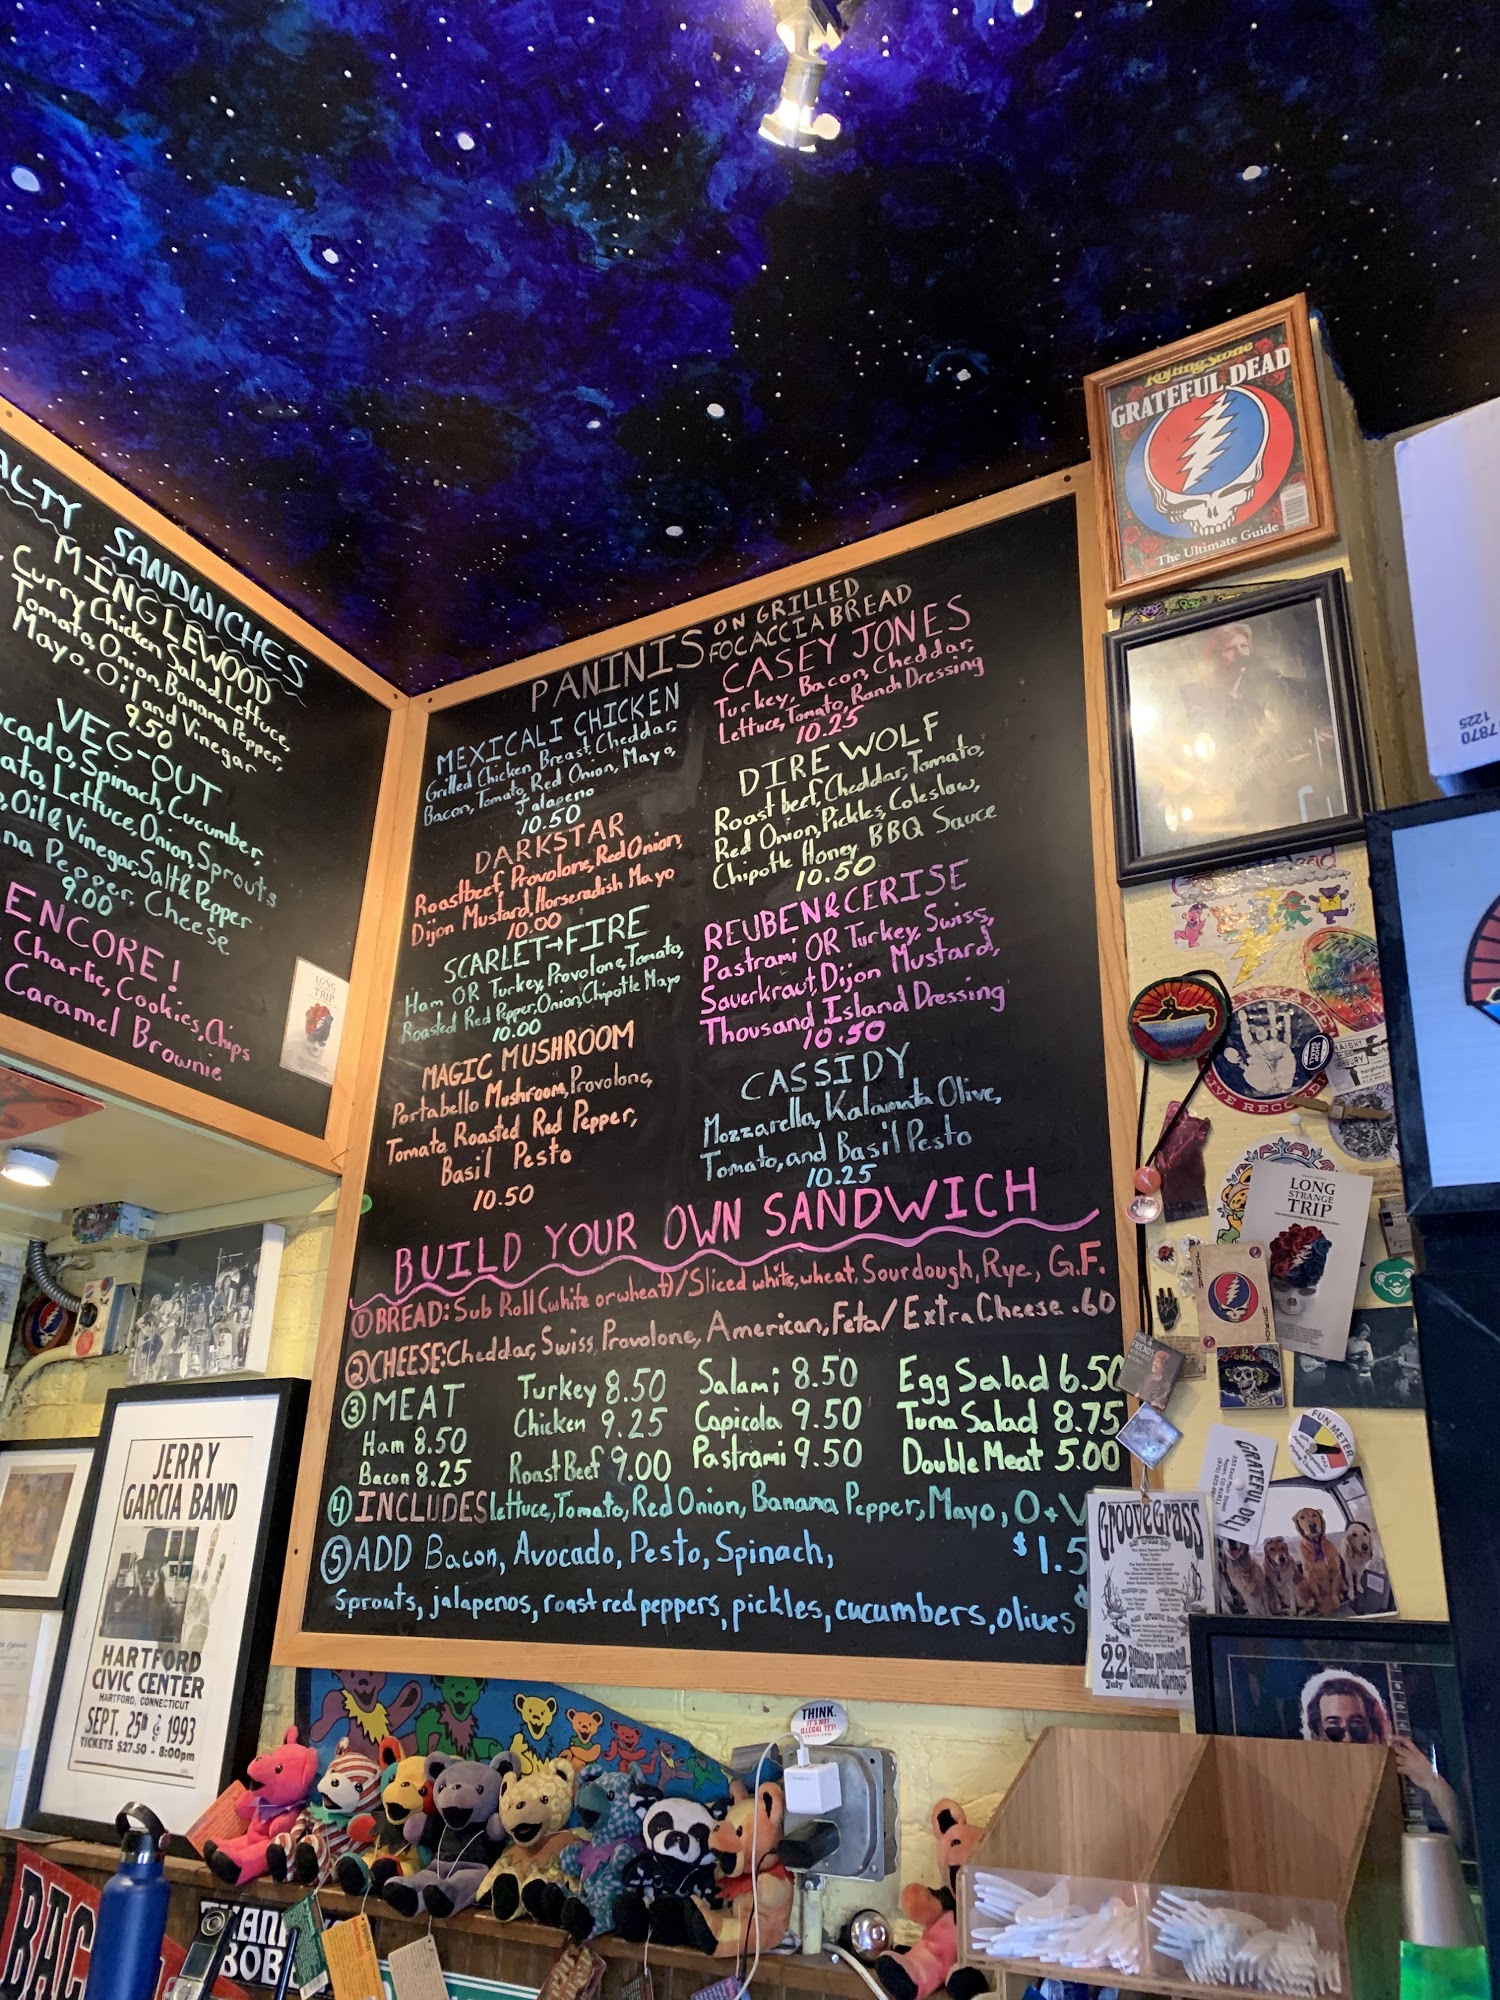 SANDWICHES
MINGLEWOOD
Curry Chicken Salad, Lettuce,
Tomato, Onion, Banana Pepper,
Mayo, Oil and Vinegar
9.50
VEG-OUT
Spinach, Cucumber,
Lettuce, Onion, Sprouts
Oil & Vinegar, Salt & Pepper
Pepper, Cheese
9.00
ENCORE!
Charlie, Cookies, Chips
Caramel Brownie
LONG
STRANGE
TRIP
PANINIS ON GRILLED
FOCACCIA BREAD
MEXICALI CHICKEN
Grilled Chicken Breast, Cheddar,
Bacon, Tomato, Red Onion, Mayo,
Jalapeno
10.50
DARKSTAR
Roastbeef, Provolone, Red Onion,
Dijon Mustard, Horseradish Mayo
10.00
SCARLET→FIRE
Ham OR Turkey, Provolone, Tomato,
Roasted Red Pepper, Onion, Chipotle Mayo
10.00
MAGIC MUSHROOM
Portabello Mushroom, Provolone,
Tomato, Roasted Red Pepper,
Basil Pesto
10.50
CASEY JONES
Turkey, Bacon, Cheddar,
Lettuce, Tomato, Ranch Dressing
10.25
DIRE WOLF
Roast beef, Cheddar, Tomato,
Red Onion, Pickles, Coleslaw,
Chipotle Honey BBQ Sauce
10.50
REUBEN & CERISE
Pastrami OR Turkey, Swiss,
Sauerkraut, Dijon Mustard,
Thousand Island Dressing
10.50
CASSIDY
Mozzarella, Kalamata Olive,
Tomato, and Basil Pesto
10.25
BUILD YOUR OWN SANDWICH
① BREAD: Sub Roll (white or wheat) / Sliced white, wheat, Sourdough, Rye, G.F.
② CHEESE: Cheddar, Swiss, Provolone, American, Feta / Extra Cheese .60
③ MEAT
Ham 8.50
Bacon 8.25
Turkey 8.50
Chicken 9.25
Roast Beef 9.00
Salami 8.50
Capicola 9.50
Pastrami 9.50
Egg Salad 6.50
Tuna Salad 8.75
Double Meat 5.00
④ INCLUDES lettuce, Tomato, Red Onion, Banana Pepper, Mayo, O + V
⑤ ADD Bacon, Avocado, Pesto, Spinach, $1.5
Sprouts, jalapenos, roast red peppers, pickles, cucumbers, olives
Rolling Stone
GRATEFUL DEAD
The Ultimate Guide
1225
LONG
STRANGE
TRIP
FUN METER
GRATEFUL DELI
GROOVEGRASS
Sat.
22
July
Glenwood Springs
JERRY
GARCIA BAND
HARTFORD
CIVIC CENTER
HARTFORD, CONNECTICUT
SEPT. 25th & 1993
TICKETS $27.50 - 8:00pm
THINK.
IT'S NOT
ILLEGAL YET!
BOB